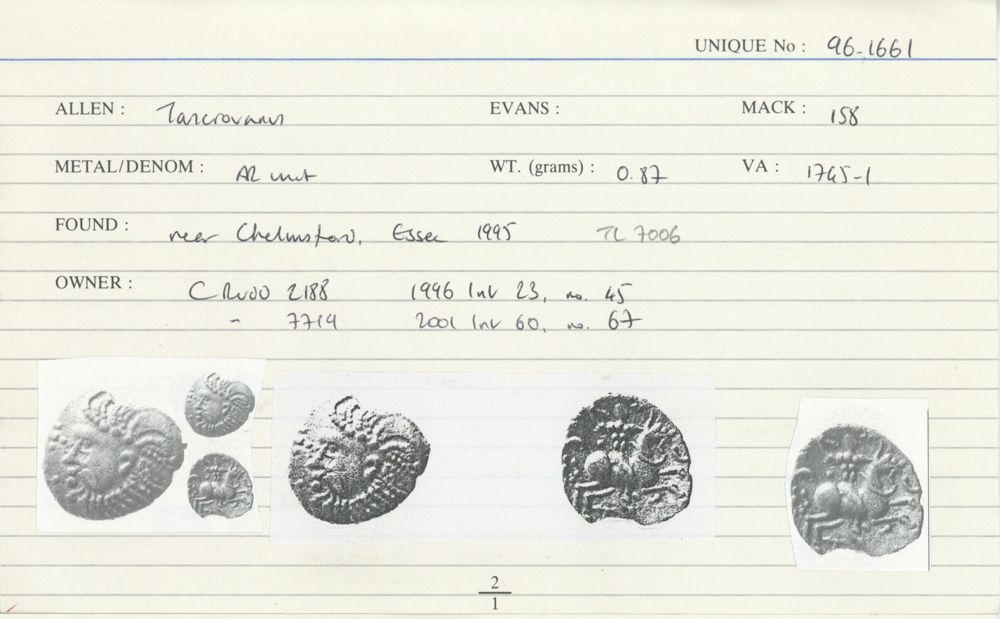 UNIQUE No : 96-1661
ALLEN : Tascrovanus EVANS : MACK : 158
METAL/DENOM : AR unit WT. (grams) : 0.87 VA : 1745-1
FOUND : near Chelmsford, Essex 1995 TL 7006
OWNER : C Rudd 2188 1996 Inv 23, no. 45
" 7714 2001 Inv 60, no. 67
2
1